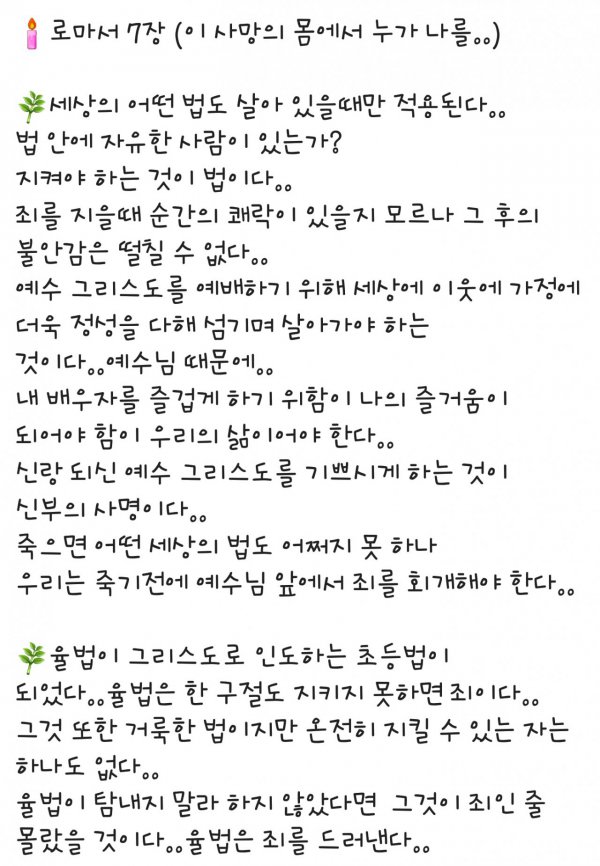 🕯️로마서 7장 (이 사망의 몸에서 누가 나를。。)
🌿세상의 어떤 법도 살아 있을때만 적용된다。。
법 안에 자유한 사람이 있는가?
지켜야 하는 것이 법이다。。
죄를 지을때 순간의 쾌락이 있을지 모르나 그 후의
불안감은 떨칠 수 없다。。
예수 그리스도를 예배하기 위해 세상에 이웃에 가정에
더욱 정성을 다해 섬기며 살아가야 하는
것이다。。예수님 때문에。。
내 배우자를 즐겁게 하기 위함이 나의 즐거움이
되어야 함이 우리의 삶이어야 한다。。
신랑 되신 예수 그리스도를 기쁘시게 하는 것이
신부의 사명이다。。
죽으면 어떤 세상의 법도 어쩌지 못 하나
우리는 죽기전에 예수님 앞에서 죄를 회개해야 한다。。
🌿율법이 그리스도로 인도하는 초등법이
되었다。。율법은 한 구절도 지키지 못하면 죄이다。。
그것 또한 거룩한 법이지만 온전히 지킬 수 있는 자는
하나도 없다。。
율법이 탐내지 말라 하지 않았다면 그것이 죄인 줄
몰랐을 것이다。。율법은 죄를 드러낸다。。